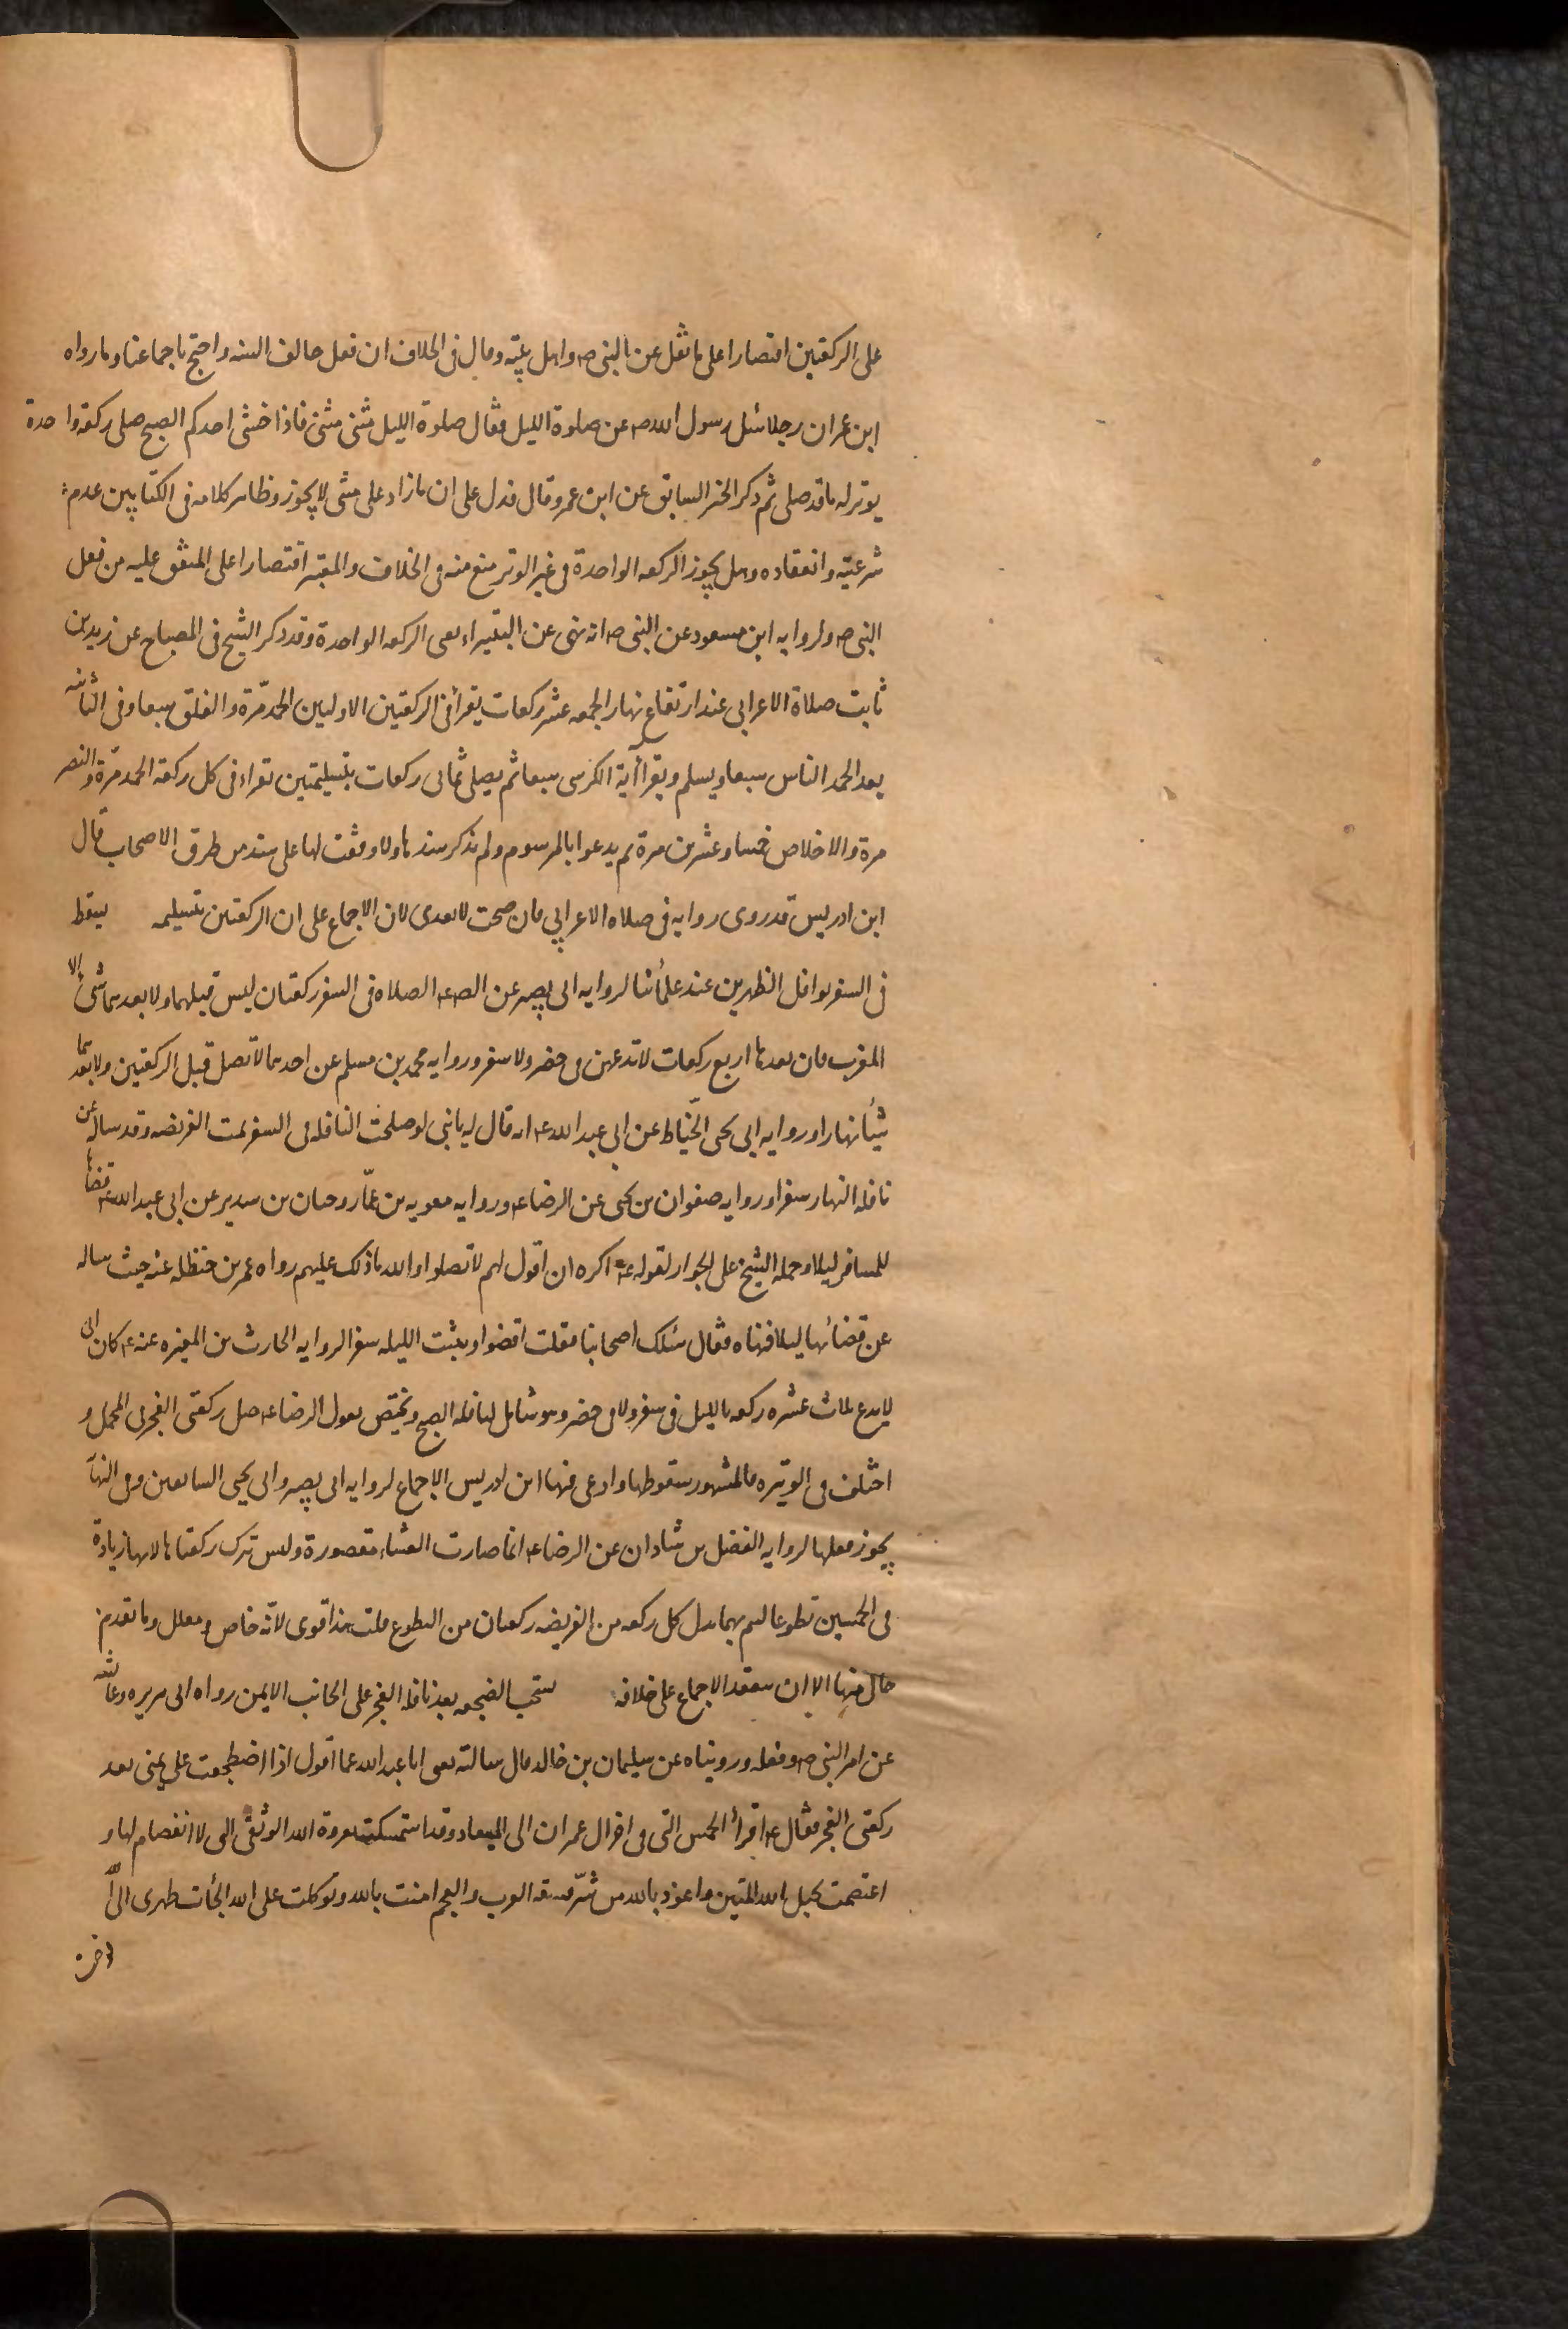 على الركعتين اقتصارا على ما نقل عن النبى ص واهل بيته وقال فى الخلاف ان فعل خالف السنه واحتج باجماعنا وما رواه
ابن عمر ان رجلا سئل رسول الله ص عن صلوة الليل فقال صلوة الليل مثنى مثنى فاذا خشى احدكم الصبح صلى ركعة واحدة
يوتر له ما قد صلى ثم ذكر الخبر السابق عن ابن عمر وقال فدل على ان ما زاد على مثنى لا يجوز وظاهر كلامه فى الكتابين عدم
شرعيته وانعقاده وهل يجوز الركعه الواحدة فى غير الوتر منع منه فى الخلاف والمعتبر اقتصارا على المتفق عليه من فعل
النبى ص ولروايه ابن مسعود عن النبى ص انه نهى عن البتيراء يعنى الركعه الواحدة وقد ذكر الشيخ فى المصباح عن زيد بن
ثابت صلاة الاعرابى عند ارتفاع نهار الجمعه عشر ركعات يقرأ فى الركعتين الاوليين الحمد مرّة والفلق سبعا وفى الثانيه
بعد الحمد الناس سبعا ويسلم ويقرأ آية الكرسى سبعا ثم يصلى ثمانى ركعات بتسليمتين تقراء فى كل ركعة الحمد مرة والنصر
مرة والاخلاص خمسا وعشرين مرة ثم يدعوا بالمرسوم ولم يذكر سندها ولا وقفت لها على سند من طرق الاصحاب قال
ابن ادريس قد روى روايه فى صلاه الاعرابى فان صحت لا تعدى لان الاجماع على ان الركعتين بتسليمه يسقط
فى السفر نوافل الظهرين عند علمائنا لروايه ابى بصير عن الصـ ع الصلاه فى السفر ركعتان ليس قبلهما ولا بعدهما شئ الا
المغرب فان بعدها اربع ركعات لا تدعهن فى حضر ولا سفر وروايه محمد بن مسلم عن احدهما لا تصل قبل الركعتين ولا بعدهما
شيأ نهارا وروايه ابى يحيى الحنّاط عن ابى عبد الله ع انه قال له يا بنى لو صلحت النافله فى السفر تمت الفريضه وقد ساله عن
نافله النهار سفرا وروايه صفوان بن يحيى عن الرضا ع وروايه معويه بن عمّار وحنان بن سدير عن ابى عبد الله ع قضاها
للمسافر ليلا وحمله الشيخ على الجواز لقوله ع اكره ان اقول لهم لا تصلوا والله ما ذلك عليهم رواه عمر بن حنظله عنه حيث ساله
عن قضائها ليلا فنهاه فقال سئلك اصحابنا فقلت اقضوا ويثبت الليله سفرا لروايه الحارث بن المغيره عنه ع كان ابى
لا يدع ثلاث عشره ركعه بالليل فى سفر ولا فى حضر وهو شامل لنافله الصبح ويختص بقول الرضا ع صل ركعتى الفجر فى المحمل و
اختلف فى الوتيره فالمشهور سقوطها وادعى فيها ابن ادريس الاجماع لروايه ابى بصير وابى يحيى السابقين وفى النهآ
يجوز فعلها لروايه الفضل بن شاذان عن الرضا ع انما صارت العشاء مقصورة وليس تترك ركعتاها لانها زيادة
فى الخمسين تطوعا ليتم بهما بدل كل ركعه من الفريضه ركعتان من التطوع قلت هذا قوى لانّه خاص ومعلل وما تقدم
خال منها الا ان ينعقد الاجماع على خلافه يستحب الضجعه بعد نافله الفجر على الجانب الايمن رواه ابى هريره وعائشه
عن امر النبى ص وفعله ورويناه عن سليمان بن خالد قال سالته يعنى ابا عبد الله عما اقول اذا اضطجعت على يمينى بعد
ركعتى الفجر فقال ع اقرأ الخمس التى فى اخر ال عمران الى الميعاد وقد استمسكت بعروة الله الوثقى التى لا انفصام لها و
اعتصمت بحبل الله المتين واعوذ بالله من شرّ فسقه العرب والعجم امنت بالله وتوكلت على الله الجأت ظهرى الى الله
اخره